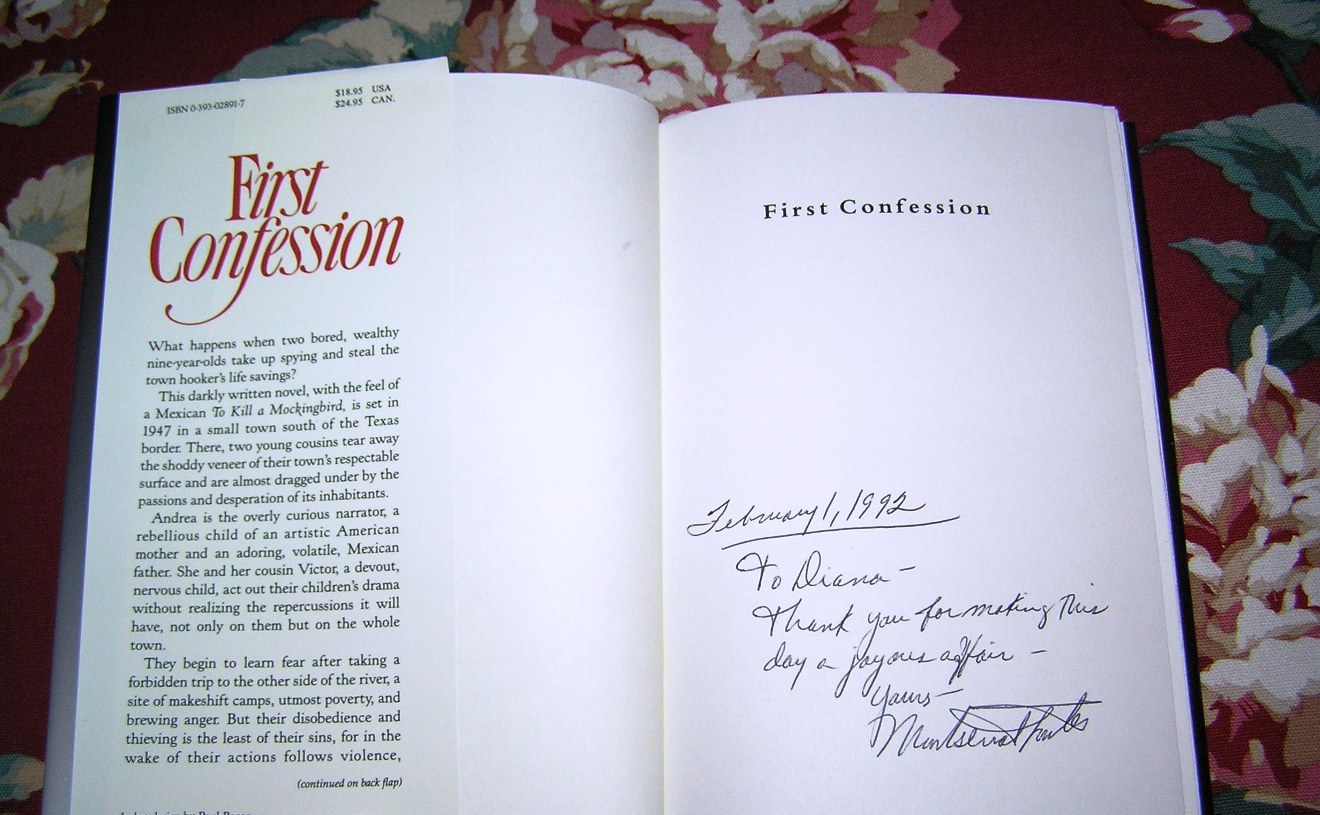 ISBN 0-393-02891-7
$18.95 USA
$24.95 CAN.
First
Confession
What happens when two bored, wealthy
nine-year-olds take up spying and steal the
town hooker's life savings?
This darkly written novel, with the feel of
a Mexican To Kill a Mockingbird, is set in
1947 in a small town south of the Texas
border. There, two young cousins tear away
the shoddy veneer of their town's respectable
surface and are almost dragged under by the
passions and desperation of its inhabitants.
Andrea is the overly curious narrator, a
rebellious child of an artistic American
mother and an adoring, volatile, Mexican
father. She and her cousin Victor, a devout,
nervous child, act out their children's drama
without realizing the repercussions it will
have, not only on them but on the whole
town.
They begin to learn fear after taking a
forbidden trip to the other side of the river, a
site of makeshift camps, utmost poverty, and
brewing anger. But their disobedience and
thieving is the least of their sins, for in the
wake of their actions follows violence,
(continued on back flap)
First Confession
February 1, 1992
To Diana -
Thank you for making this
day a joyous affair -
Yours -
Montserrat Fontes